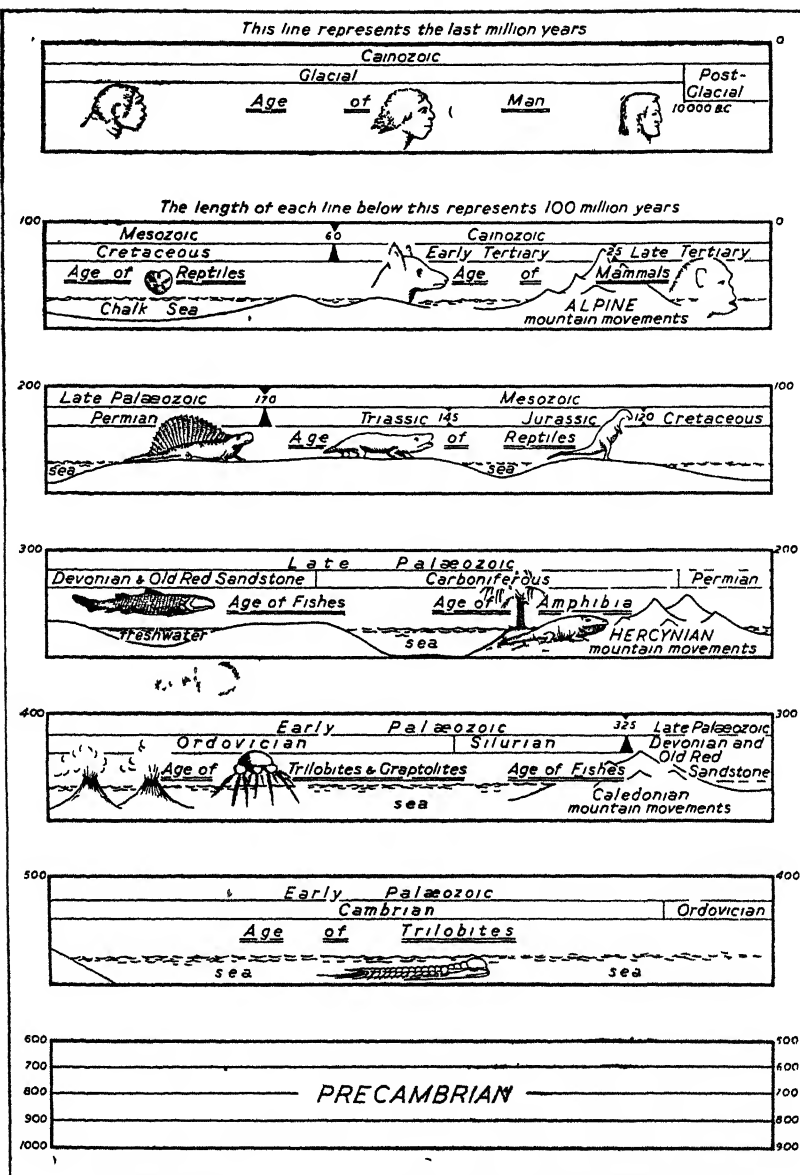 This line represents the last million years
0
Cainozoic
Glacial
Post-
Glacial
Age of Man
10 000 B.C
The length of each line below this represents 100 million years
100
0
Mesozoic 60 Cainozoic
Cretaceous Early Tertiary 25 Late Tertiary
Age of Reptiles Age of Mammals
Chalk Sea ALPINE
mountain movements
200
100
Late Palæozoic 170 Mesozoic
Permian Triassic 145 Jurassic 120 Cretaceous
Age of Reptiles
sea sea
300
200
Late Palæozoic
Devonian & Old Red Sandstone Carboniferous Permian
Age of Fishes Age of Amphibia
freshwater sea HERCYNIAN
mountain movements
400
300
Early Palæozoic 325 Late Palæozoic
Ordovician Silurian Devonian and
Old Red
Age of Trilobites & Graptolites Age of Fishes Sandstone
sea Caledonian
mountain movements
500
400
Early Palæozoic
Cambrian Ordovician
Age of Trilobites
sea sea
600 500
700 600
800 PRECAMBRIAN 700
900 800
1000 900